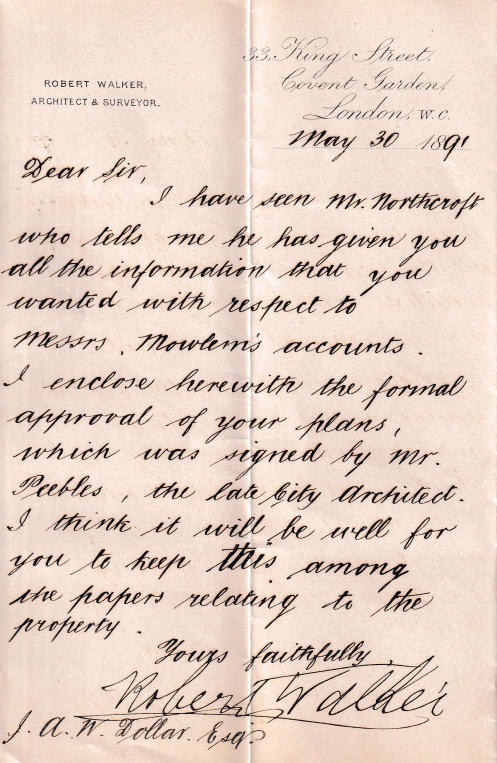 ROBERT WALKER,
ARCHITECT & SURVEYOR.
33, King Street,
Covent Garden,
London, W.C.
May 30 1891
Dear Sir,
I have seen Mr. Northcroft
who tells me he has given you
all the information that you
wanted with respect to
Messrs. Mowlem's accounts.
I enclose herewith the formal
approval of your plans,
which was signed by Mr.
Peebles, the late City Architect.
I think it will be well for
you to keep this among
the papers relating to the
property.
Yours faithfully,
Robert Walker
J. A. W. Dollar. Esqr.